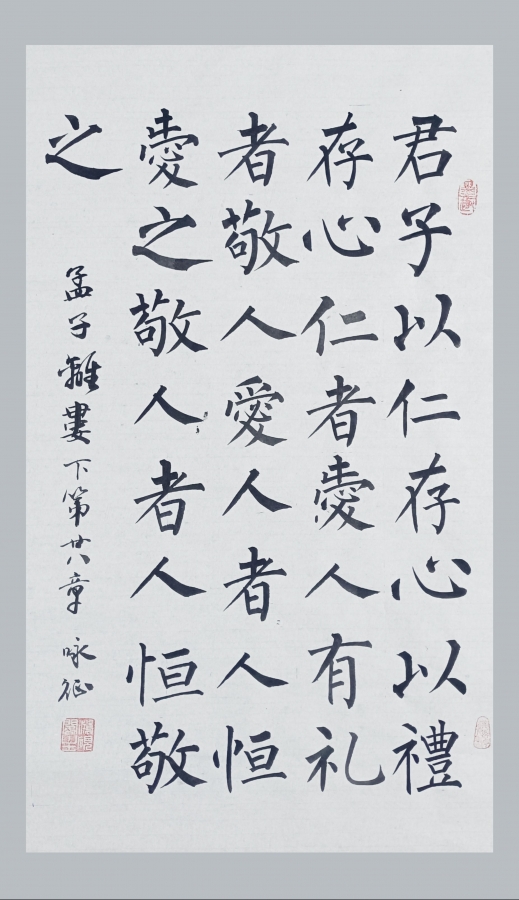 君子以仁存心以禮
存心仁者愛人有礼
者敬人愛人者人恒
愛之敬人者人恒敬
之
孟子離婁下第廿八章 咏征